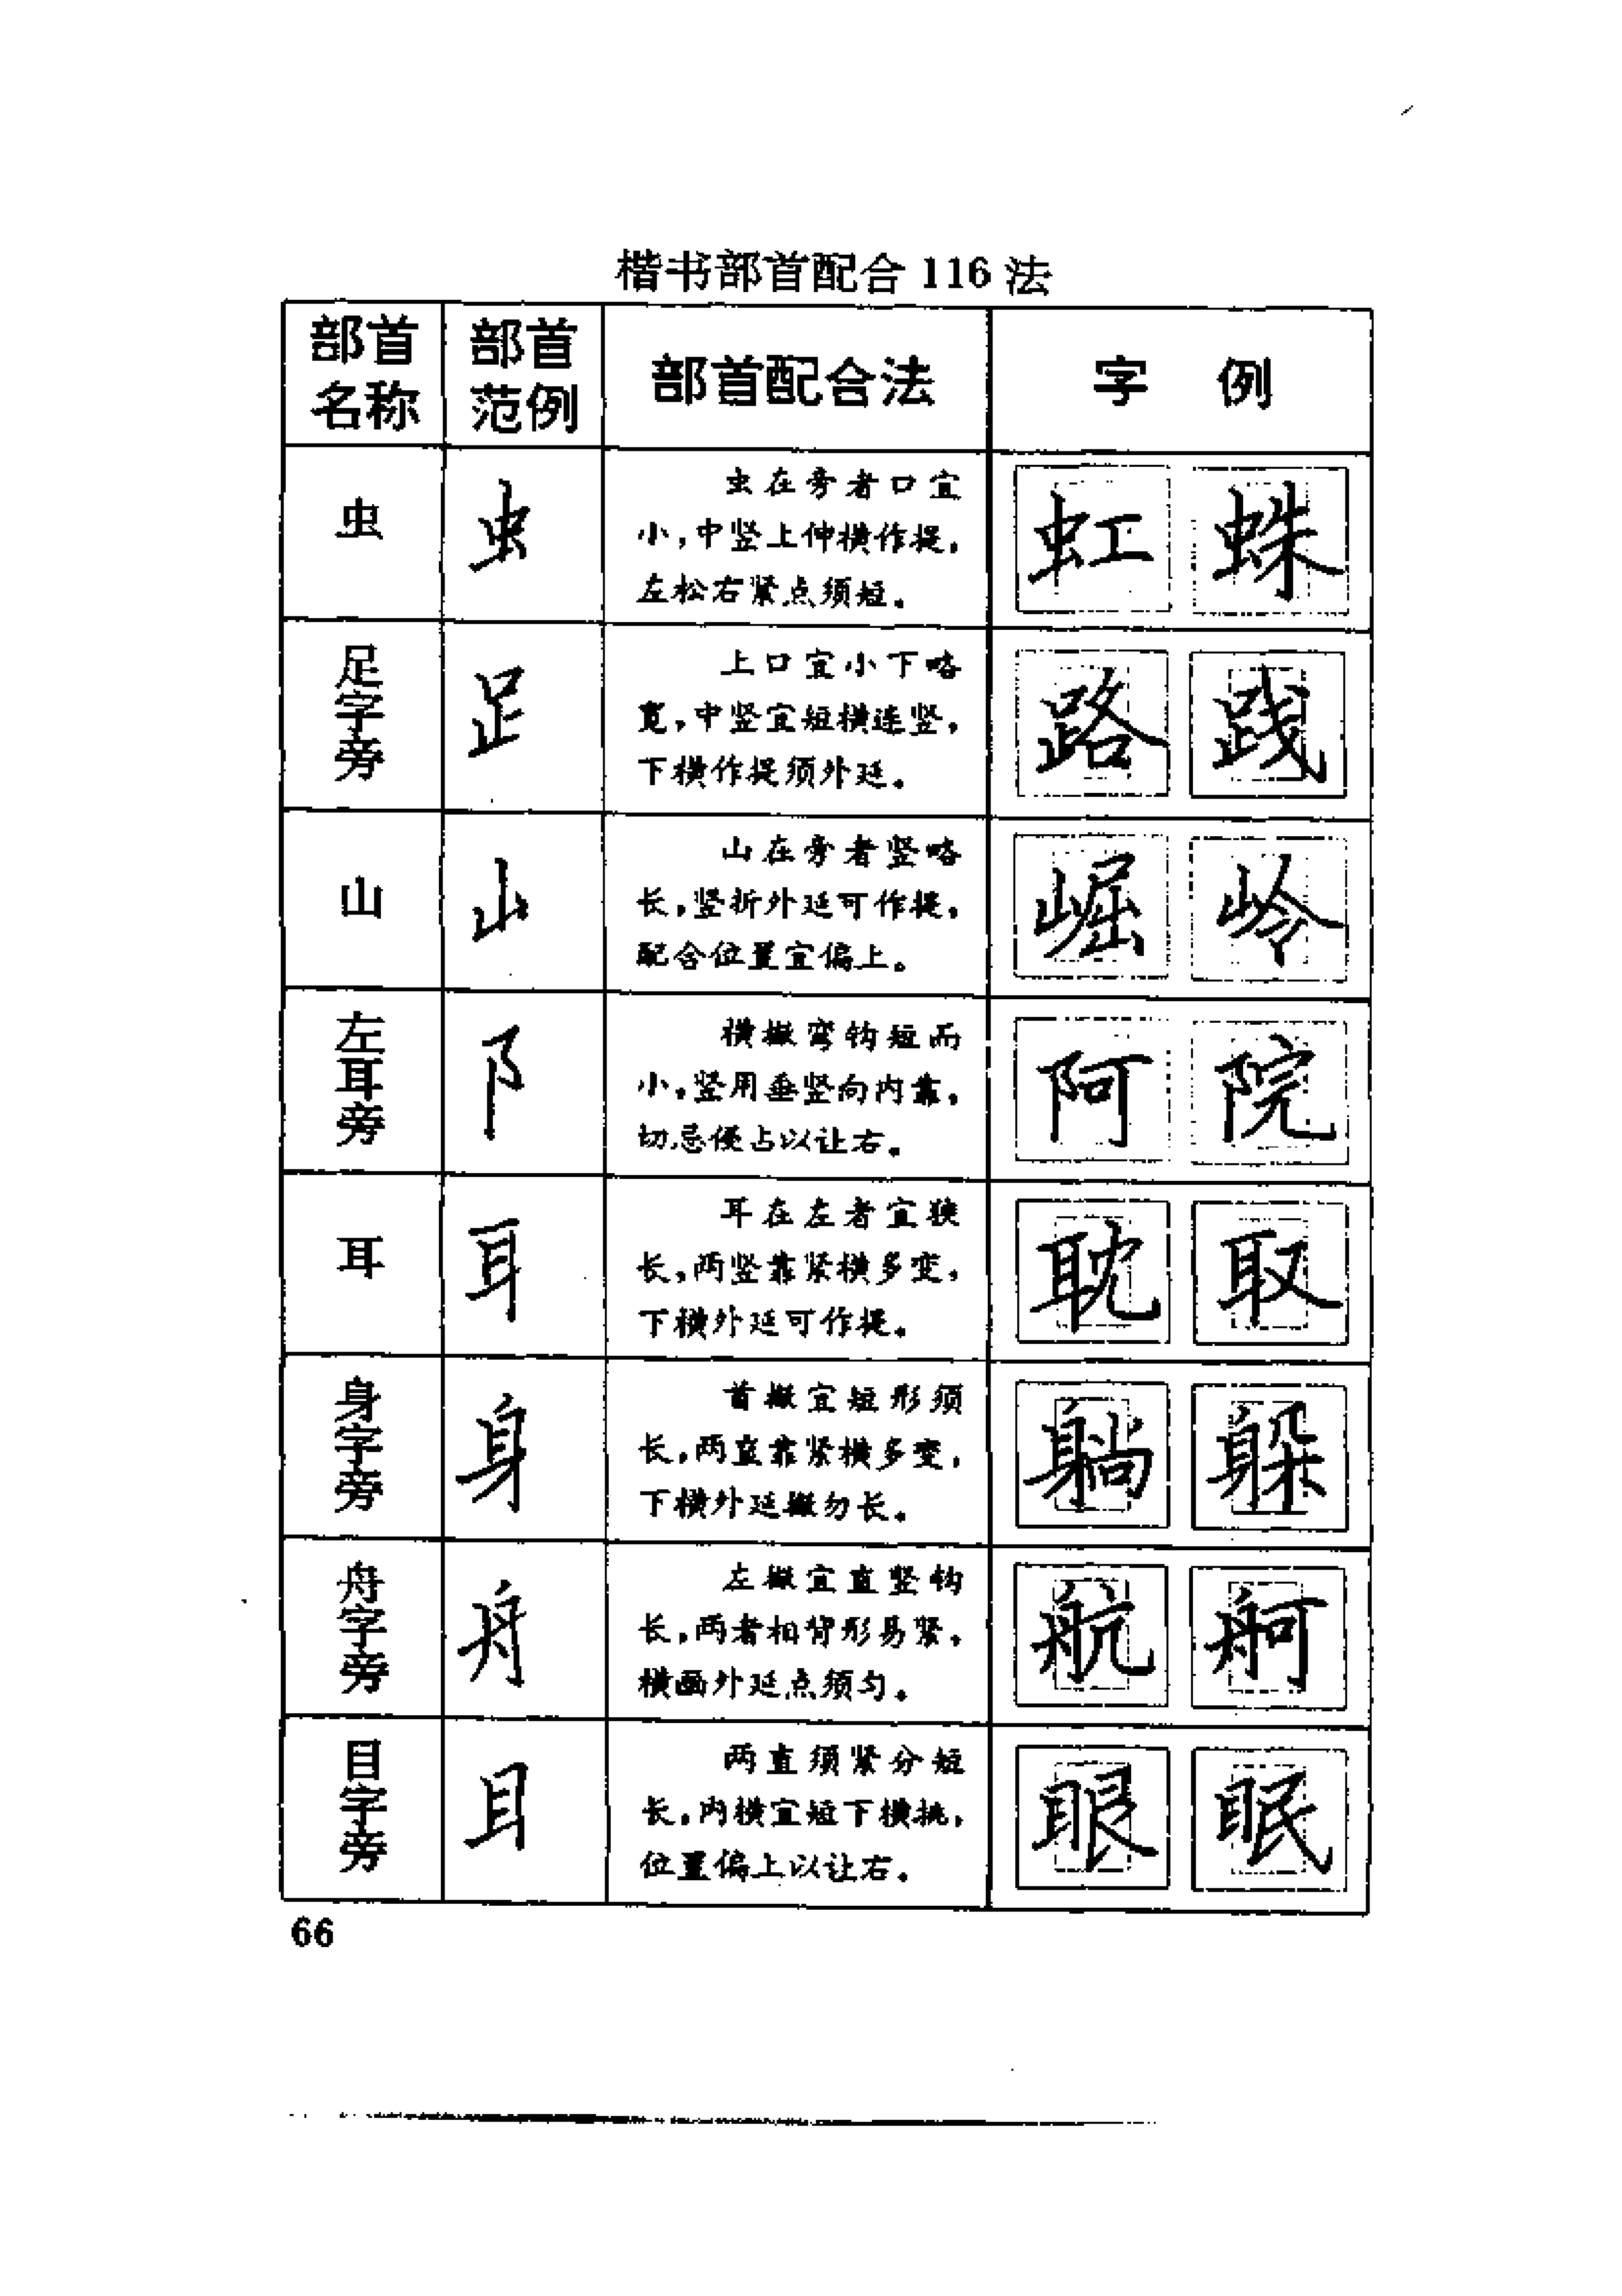 楷书部首配合116法
部首名称 部首范例 部首配合法 字例
虫 虫 虫在旁者口宜 虹 蛛
小，中竖上伸横作提，
左松右紧点须短。
足字旁 𧾷 上口宜小下略 路 践
宽，中竖宜短横连竖，
下横作提须外延。
山 山 山在旁者竖略 崛 岭
长，竖折外延可作提，
配合位置宜偏上。
左耳旁 阝 横撇弯钩短而 阿 院
小，竖用垂竖向内靠，
切忌侵占以让右。
耳 耳 耳在左者宜狭 耽 取
长，两竖靠紧横多变，
下横外延可作提。
身字旁 身 首撇宜短形须 躺 躲
长，两直靠紧横多变，
下横外延撇勿长。
舟字旁 舟 左撇宜直竖钩 航 舸
长，两者相背形易紧，
横画外延点须匀。
目字旁 目 两直须紧分短 眼 眠
长，内横宜短下横挑，
位置偏上以让右。
66